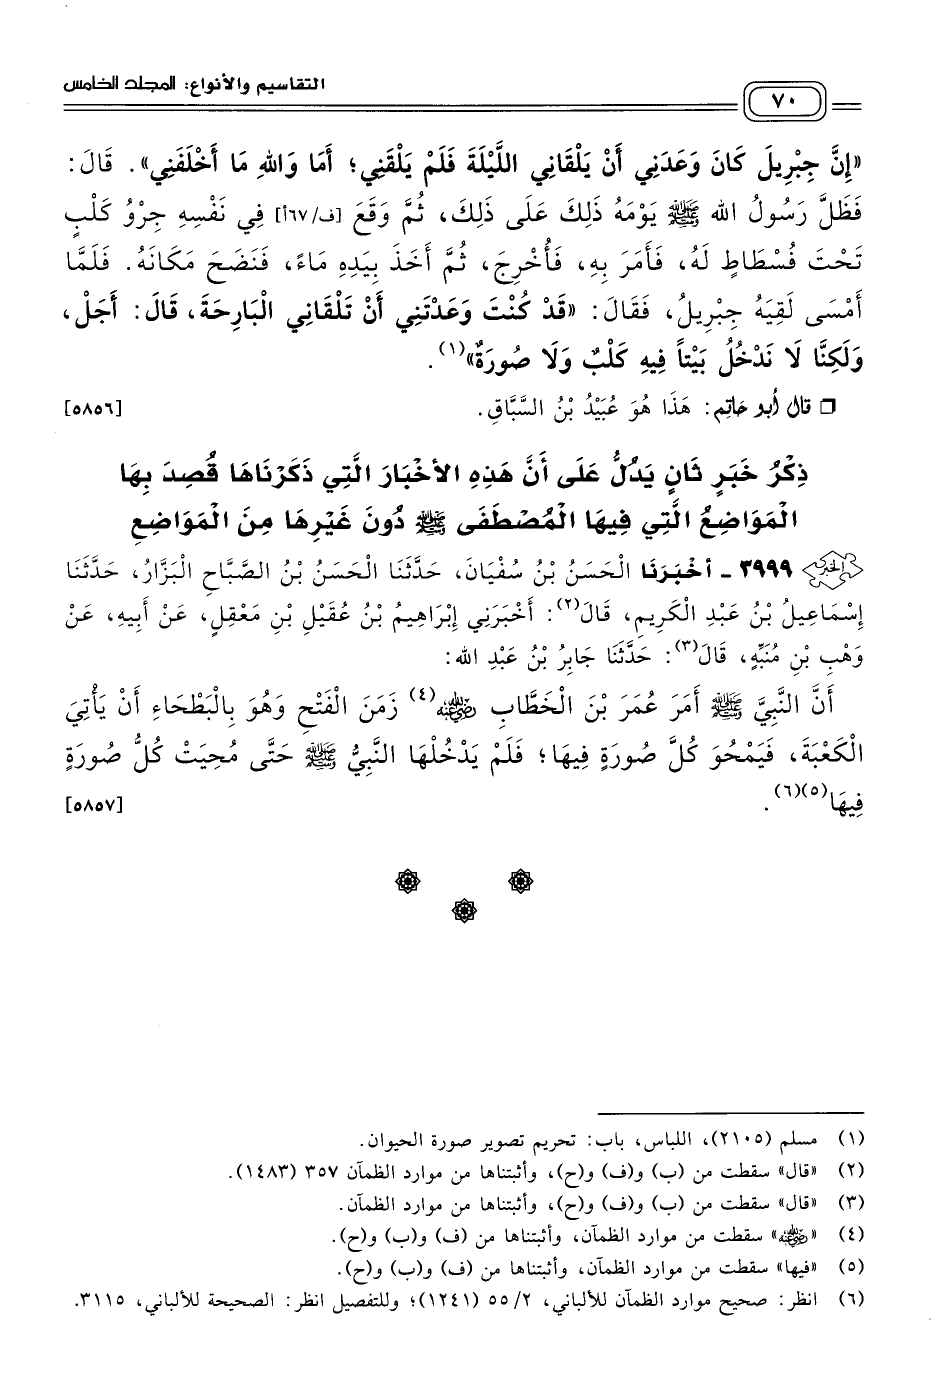 التقاسيم والأنواع: المجلد الخامس
٧٠
«إِنَّ جِبْرِيلَ كَانَ وَعَدَنِي أَنْ يَلْقَانِي اللَّيْلَةَ فَلَمْ يَلْقَنِي؛ أَمَا وَاللهِ مَا أَخْلَفَنِي». قَالَ:
فَظَلَّ رَسُولُ الله ﷺ يَوْمَهُ ذَلِكَ عَلَى ذَلِكَ، ثُمَّ وَقَعَ [ف/٦٧أ] فِي نَفْسِهِ جِرْوُ كَلْبٍ
تَحْتَ فُسْطَاطٍ لَهُ، فَأَمَرَ بِهِ، فَأُخْرِجَ، ثُمَّ أَخَذَ بِيَدِهِ مَاءً، فَنَضَحَ مَكَانَهُ. فَلَمَّا
أَمْسَى لَقِيَهُ جِبْرِيلُ، فَقَالَ: «قَدْ كُنْتَ وَعَدْتَنِي أَنْ تَلْقَانِي الْبَارِحَةَ، قَالَ: أَجَلْ،
وَلَكِنَّا لَا نَدْخُلُ بَيْتاً فِيهِ كَلْبٌ وَلَا صُورَةٌ»(١).
❒ قال أبو حاتم: هَذَا هُوَ عُبَيْدُ بْنُ السَّبَّاقِ. [٥٨٥٦]
ذِكْرُ خَبَرٍ ثَانٍ يَدُلُّ عَلَى أَنَّ هَذِهِ الأَخْبَارَ الَّتِي ذَكَرْنَاهَا قُصِدَ بِهَا
الْمَوَاضِعُ الَّتِي فِيهَا الْمُصْطَفَى ﷺ دُونَ غَيْرِهَا مِنَ الْمَوَاضِعِ
٣٩٩٩ - أَخْبَرَنَا الْحَسَنُ بْنُ سُفْيَانَ، حَدَّثَنَا الْحَسَنُ بْنُ الصَّبَّاحِ الْبَزَّارُ، حَدَّثَنَا
إِسْمَاعِيلُ بْنُ عَبْدِ الْكَرِيمِ، قَالَ(٢): أَخْبَرَنِي إِبْرَاهِيمُ بْنُ عُقَيْلِ بْنِ مَعْقِلٍ، عَنْ أَبِيهِ، عَنْ
وَهْبِ بْنِ مُنَبِّهٍ، قَالَ(٣): حَدَّثَنَا جَابِرُ بْنُ عَبْدِ الله:
أَنَّ النَّبِيَّ ﷺ أَمَرَ عُمَرَ بْنَ الْخَطَّابِ رضي الله عنه(٤) زَمَنَ الْفَتْحِ وَهُوَ بِالْبَطْحَاءِ أَنْ يَأْتِيَ
الْكَعْبَةَ، فَيَمْحُوَ كُلَّ صُورَةٍ فِيهَا؛ فَلَمْ يَدْخُلْهَا النَّبِيُّ ﷺ حَتَّى مُحِيَتْ كُلُّ صُورَةٍ
فِيهَا(٥)(٦). [٥٨٥٧]
(١) مسلم (٢١٠٥)، اللباس، باب: تحريم تصوير صورة الحيوان.
(٢) «قال» سقطت من (ب) و(ف) و(ح)، وأثبتناها من موارد الظمآن ٣٥٧ (١٤٨٣).
(٣) «قال» سقطت من (ب) و(ف) و(ح)، وأثبتناها من موارد الظمآن.
(٤) «رضي الله عنه» سقطت من موارد الظمآن، وأثبتناها من (ف) و(ب) و(ح).
(٥) «فيها» سقطت من موارد الظمآن، وأثبتناها من (ف) و(ب) و(ح).
(٦) انظر: صحيح موارد الظمآن للألباني، ٥٥/٢ (١٢٤١)؛ وللتفصيل انظر: الصحيحة للألباني، ٣١١٥.